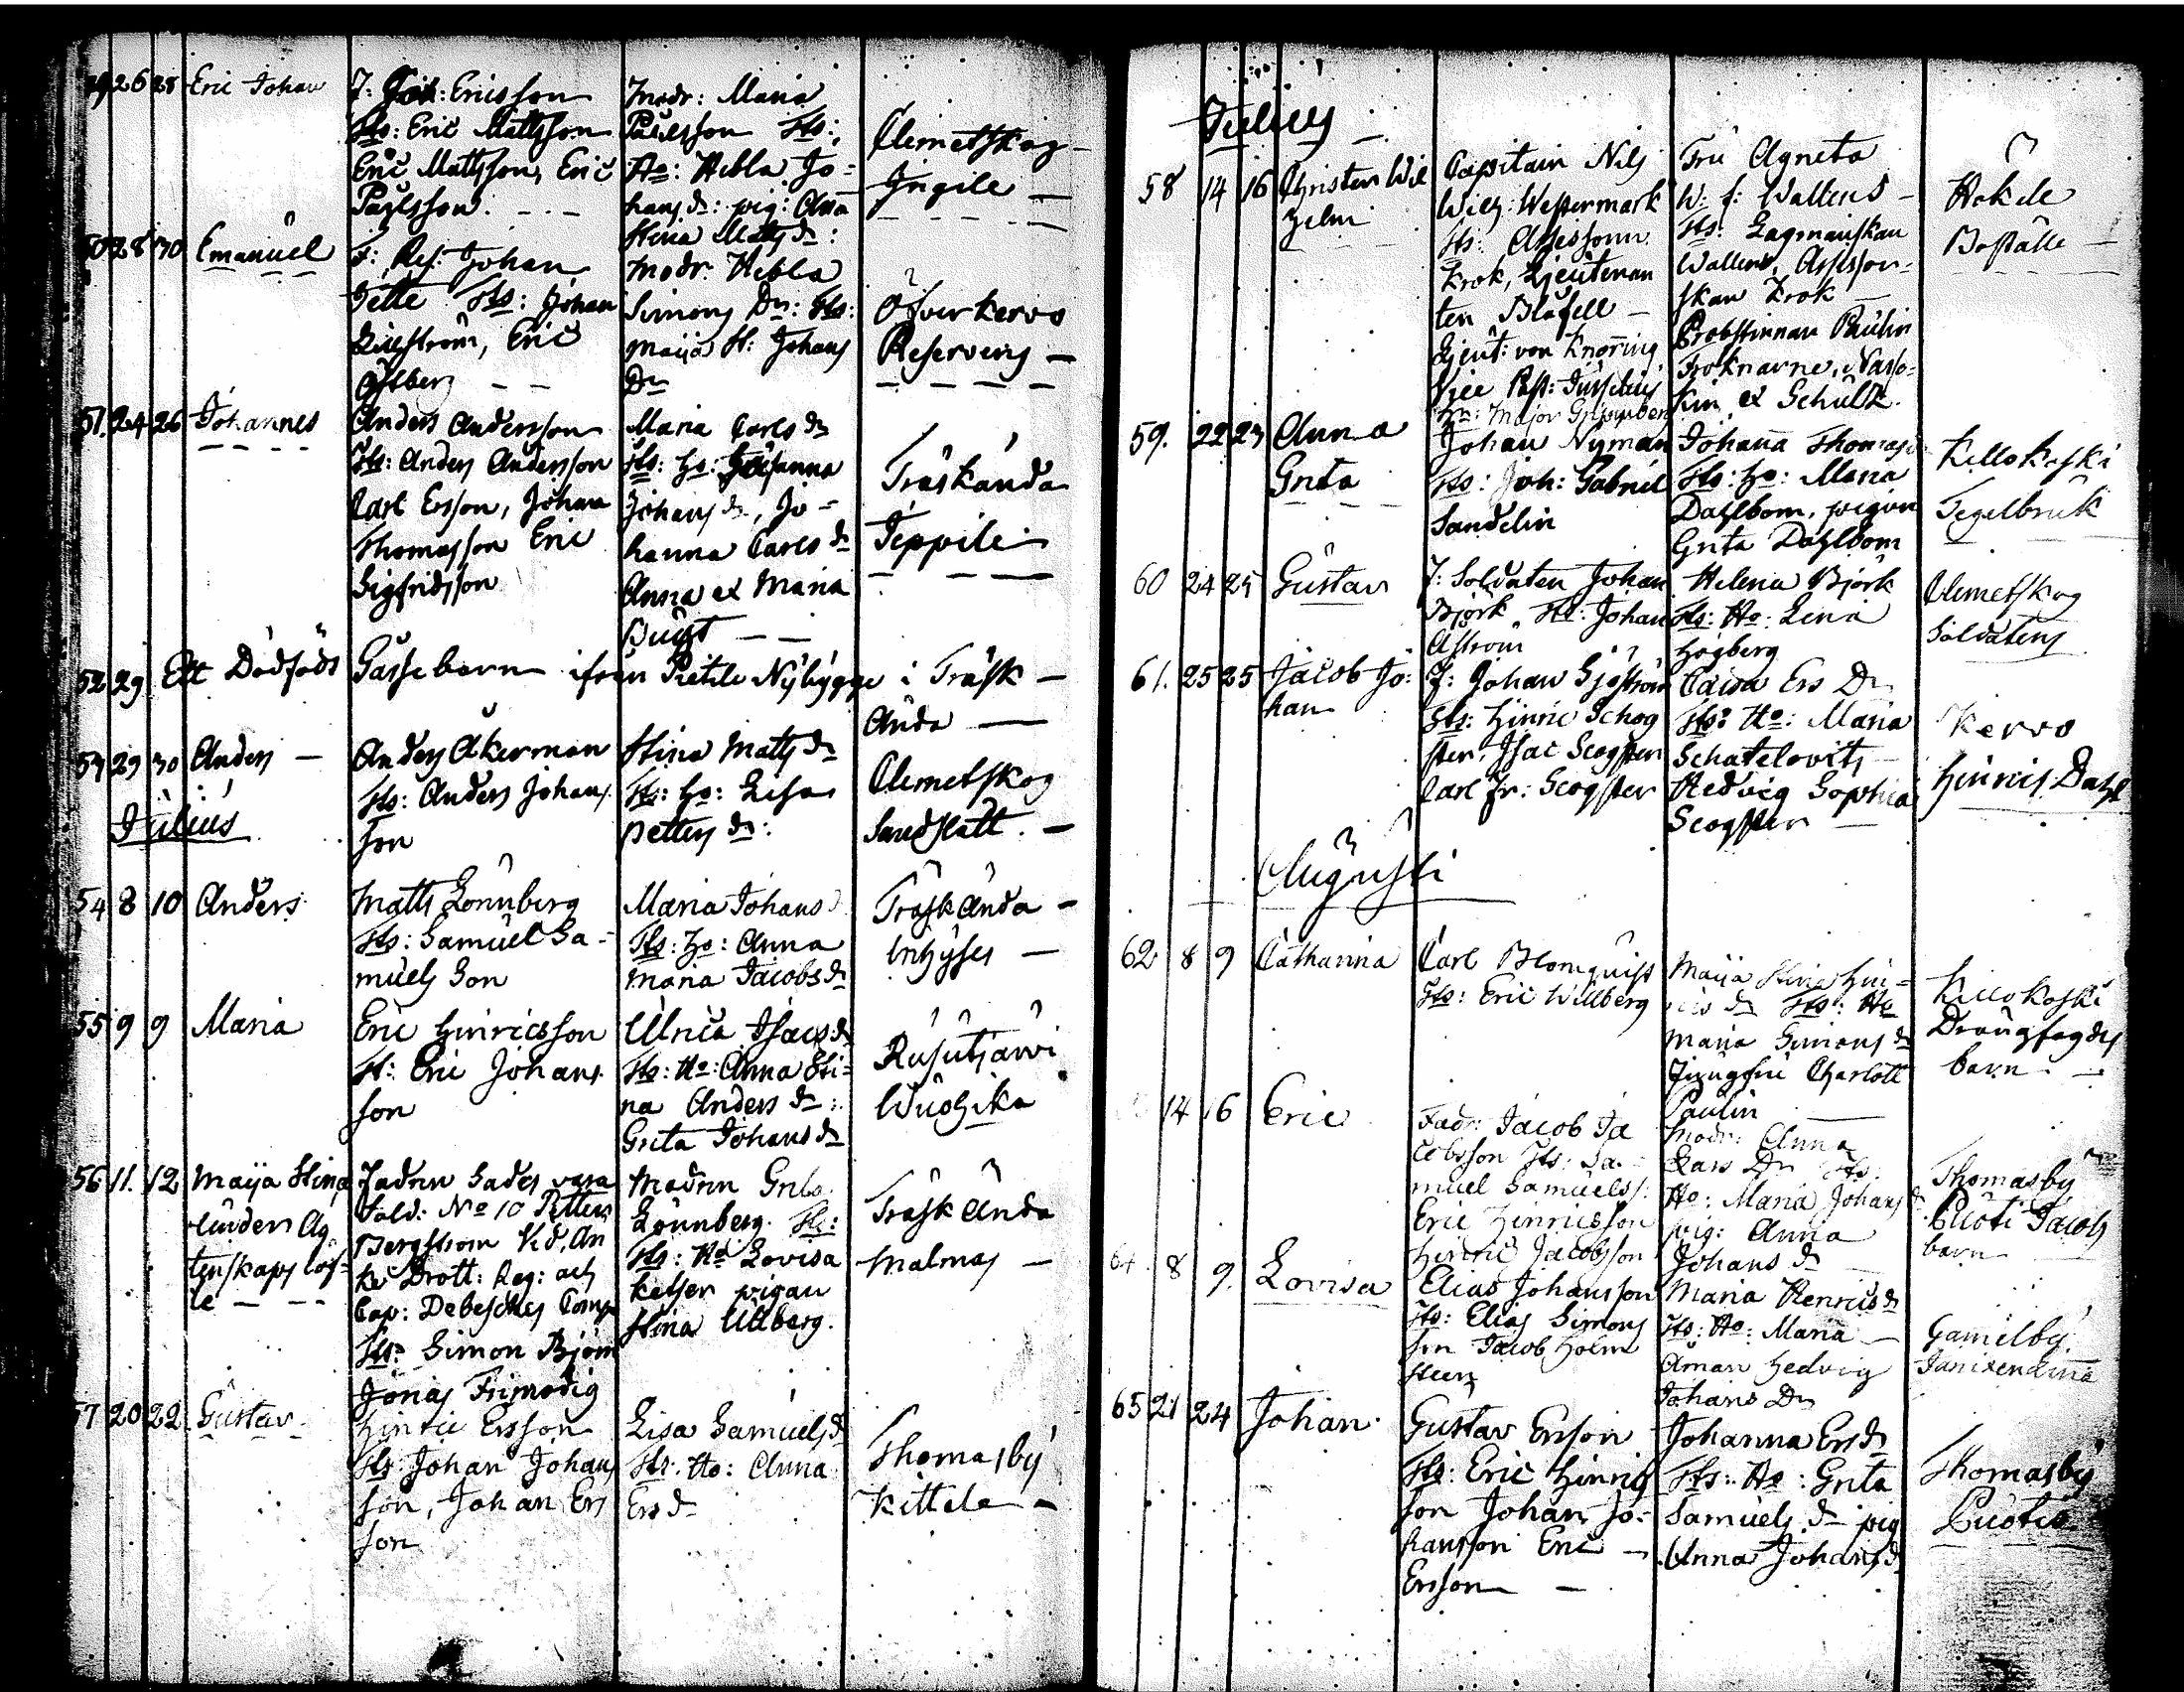 49 26 28 Eric Johan
F: Erics son
Fts: Eric Mattsson
Eric Mattsson, Eric
Pavlsson.
Modr: Maria
Pavlsson Fts:
Ho: Hebla Jo-
hans dr: pig: Anna
Stina Matts dr:
Clemetskog
Ingile
50 28 30 Emanuel
F: Res: Johan
Tette Fts: Johan
Liljeström, Eric
Öslberg
Modr. Hebla
Simons Dr: Fts:
Maija St: Johans
Dr
Öfverkervo
Reserveng
51. 24 26 Johannes
Anders Andersson
Fts: Anders Andersson
Carl Ersson, Johan
Thomasson Eric
Sigfridsson
Maria Carls dr
Fts: Ho: Johanna
Johans dr, Jo-
hanna Carls dr
Anna et Maria
Träskända
Teppile
52 29 Ett Dödfödt Gassebarn ifrån Pietile Nybygge i Träsk-
ända
53 29 30 Anders
Anders Åkerman
Fts: Anders Johans
son
Stina Matts dr
Fts: Ho: Lisa
Petters dr:
Clemetskog
Sandslätt.
Julius
54 8 10 Anders
Matts Lönnberg
Fts: Samuel Sa-
muels Son
Maria Johans
Fts: Ho: Anna
Maria Jacobs dr
Träskända
Inhyses
55 9 9 Maria
Eric Hinricsson
Ft: Eric Johans
son
Ulrica Isacs dr
Fts: Ho: Anna Sti-
na Anders dr:
Greta Johans dr
Rusutjärvi
Wuohika
56 11. 12 Maija Stina
under Äg-
tenskaps löf-
te
Fadren Sades vara
Sold: No 10 Petter
Bergstrom vid, An
ke Drott: Reg: och
Cap: Debesches Comp
Fts: Simon Björn
Jonas Frimodig
Modren Greta
Lönnberg. Fts:
Fts: Ho Lovisa
Keiser pigan
Stina Ullberg.
Träskända
Malmas
57 20 22 Gustav
Hinric Ersson
Fts Johan Johans
son, Johan Ers
son
Lisa Samuels dr
Fts: Ho: Anna
Ers dr
Thomasby
Kittela
Julius
58 14 16 Christer Wil
helm
Capitain Nils
Wilh: Westermark
Fts: Assessorn
Krok, Lieutenan
ten Blåfell
Lieut: von Knorring
Vice Past: Juselius
Hr: Major Gripenberg
Fru Agneta
W: f: Wallens
Fts: Lagmanskan
Wallens, Assessor-
skan Krok
Probstinnan Paulin
Froknarne, Naso-
kin, et Schultz.
Hakele
Boställe
59. 22 23 Anna
Greta
Johan Nyman
Fts: Joh: Gabriel
Sandelin
Johana Thomasd
Fts: Ho: Maria
Dahlbom, pigan
Greta Dahlbom
Kellokoski
Tegelbruk
60 24 25 Gustav
F: Soldaten Johan
Björk Ft: Johan
Åström
Helena Björk
Fts: Ho: Lena
Högberg
Clemetskog
Soldatens
61. 25 25 Jacob Jo-
han
F: Johan Sjöström
Fts: Hinric Schog
ster, Isac Scogster
Carl Fr: Scogster
Caisa Ers Dr
Fts: Ho: Maria
Schatelovits
Hedvig Sophia
Scogster
Kervo
Hinrics Dahl
Augusti
62 8 9 Catharina
Carl Blomquist
Fts: Eric Willberg
Maija Stina Hin-
rics dr Fts: Ho
Maria Simons dr
Jungfru Charlott
Paulin
Kellokoski
Drängfogdes
barn
14 16 Eric
Fadr: Jacob Ja
cobsson Fts: Sa-
muel Samuels s:
Eric Hinricsson
Hinric Jacobsson
Modr: Anna
Lars Dr Fts:
Ho: Maria Johans dr
pig: Anna
Johans dr
Thomasby
Puoti Jacobs
barn
64. 8 9. Lovisa
Elias Johansson
Fts: Elias Simons
son Jacob Holm
steen
Maria Henrics dr
Fts: Ho: Maria
Åman Hedvig
Johans Dr
Gamelby
65 21 24 Johan
Gustav Erson
Fts: Eric Hinrics
son Johan Jo-
hansson Eric
Ersson
Johanna Ers dr
Fts: Ho: Greta
Samuels dr pig
Anna Johans dr
Thomasby
Puotis